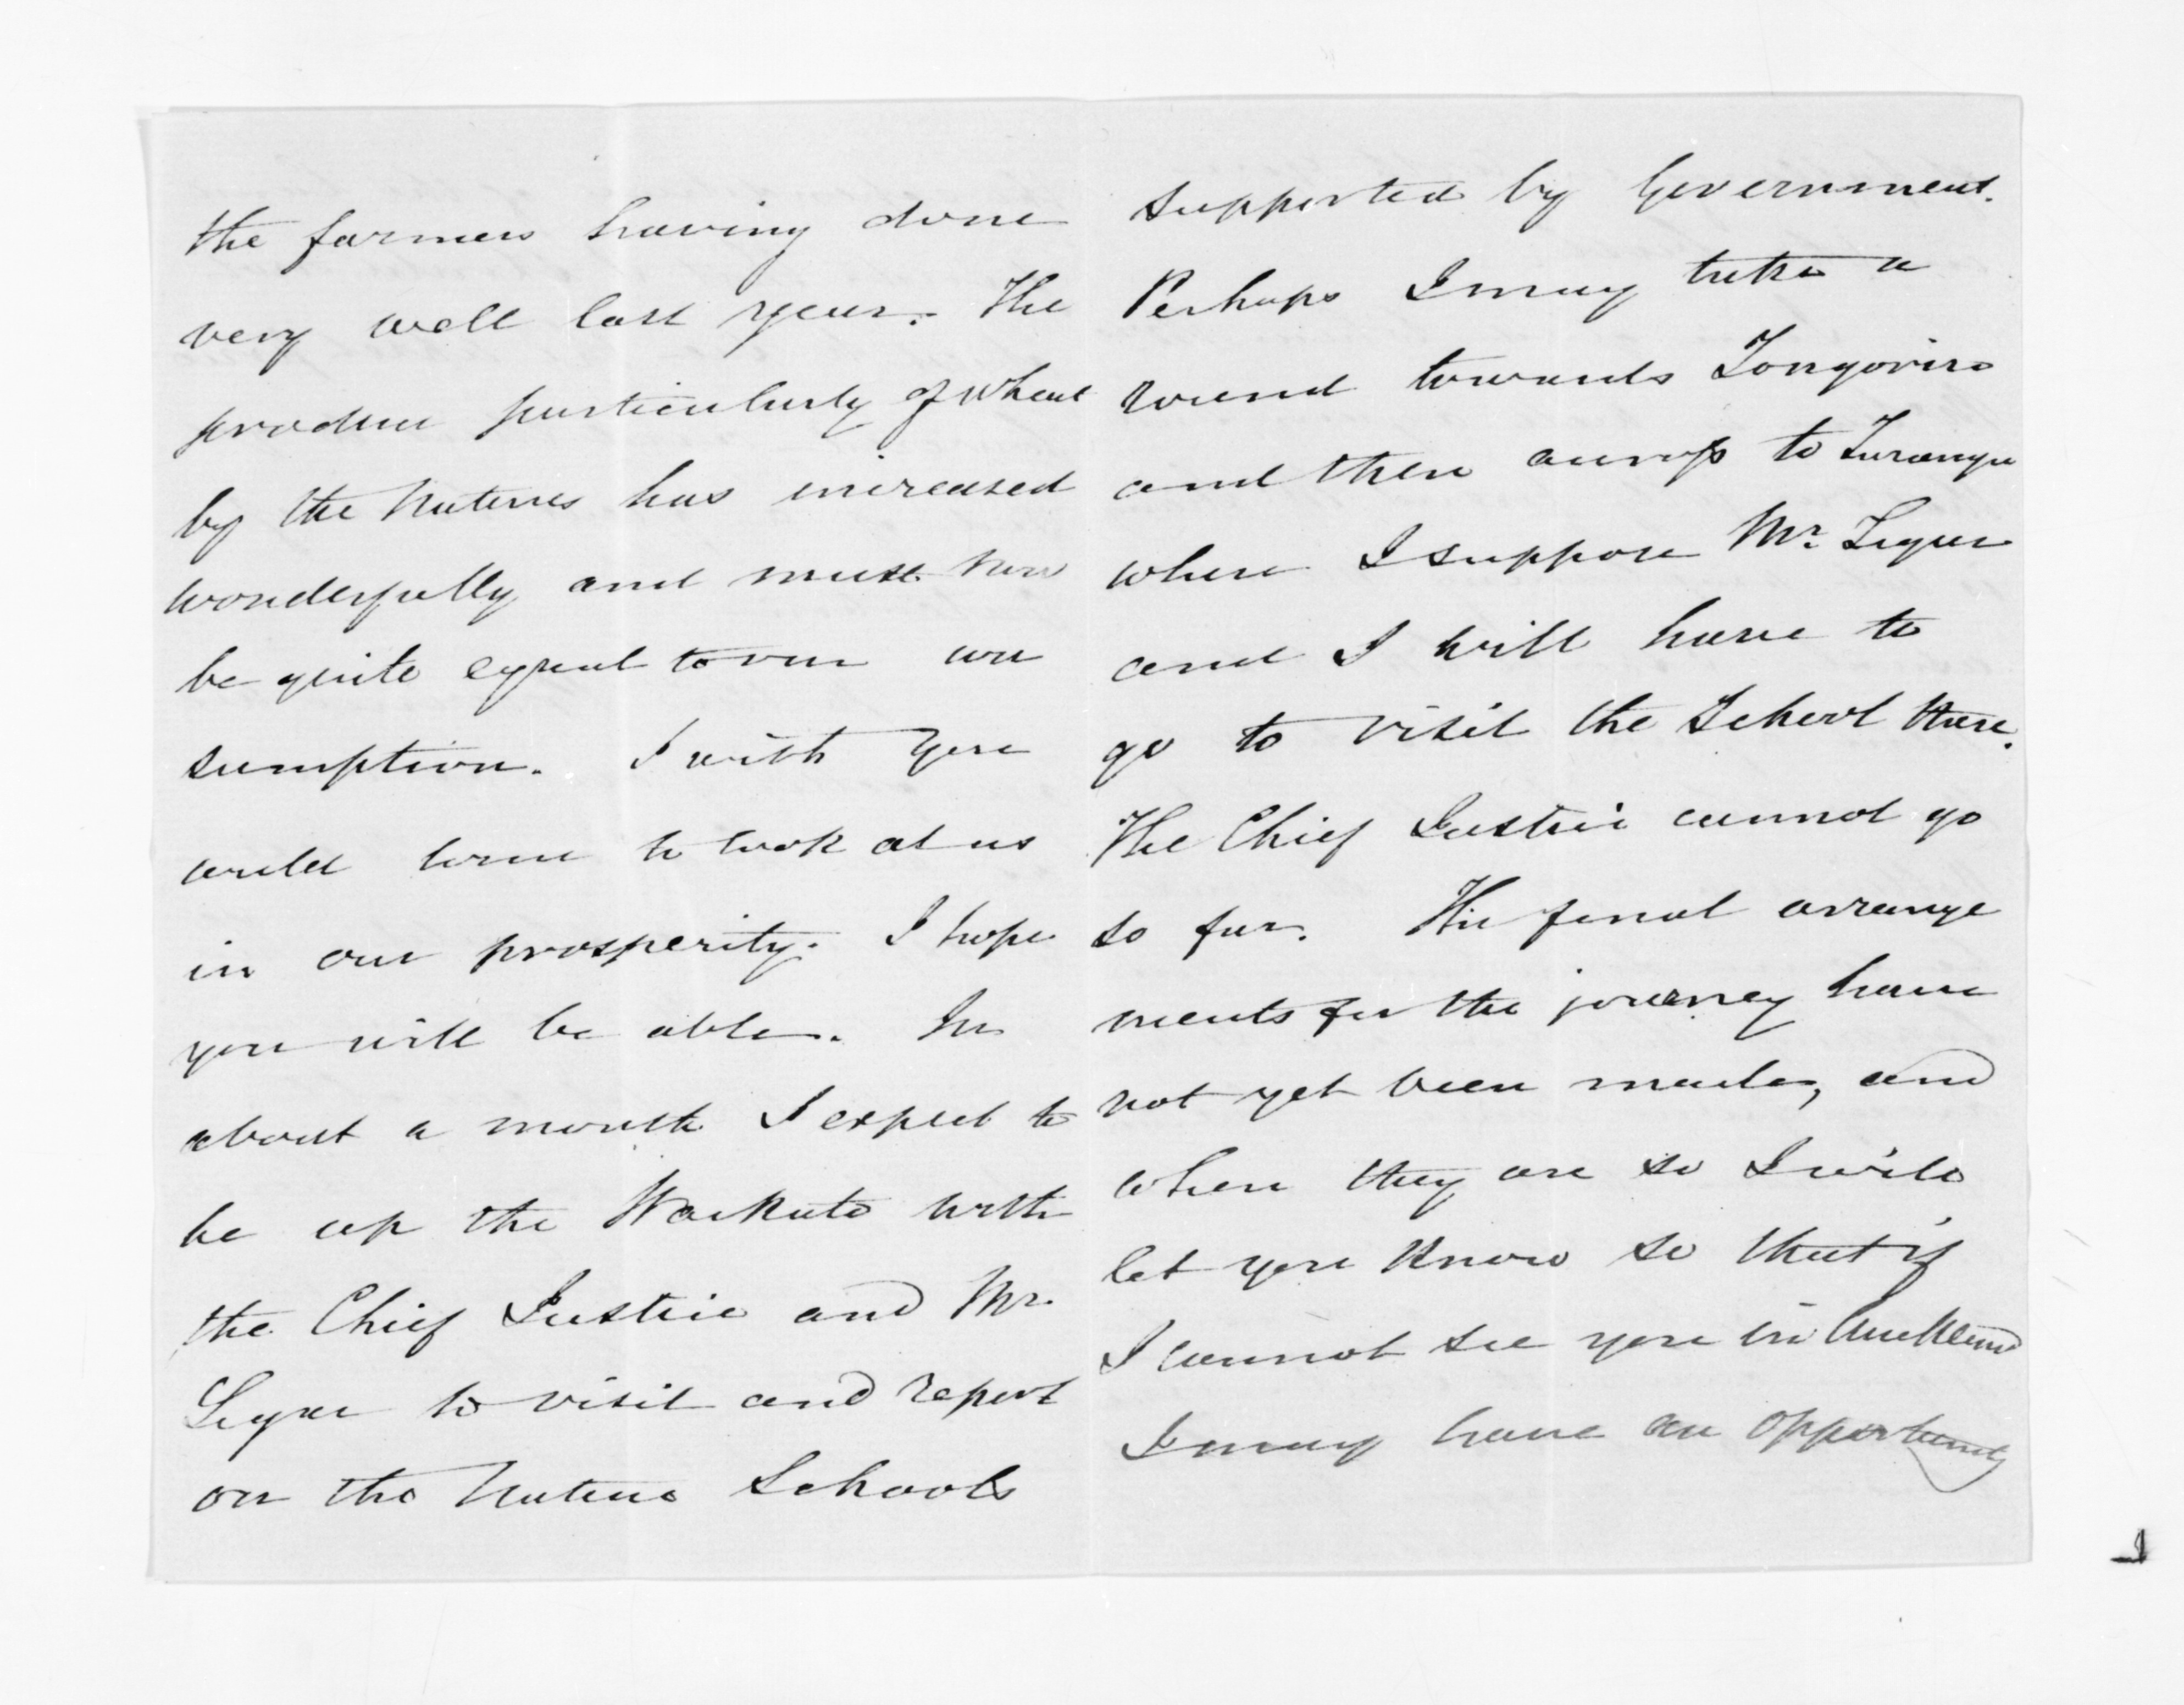 the farmers having done
very well last year. The
produce particularly of wheat
by the Natives has increased
wonderfully and must now
be quite equal to our con
sumption. I wish you
could come to look at us
in our prosperity. I hope
you will be able. In
about a month I expect to
be up the Waikato with
the Chief Justice and Mr.
Ligar to visit and report
on the Native Schools
supported by Government.
Perhaps I may take a
round towards Tongoriro
and then across to Turanga
where I suppose Mr. Ligar
and I will have to
go to visit the School there.
The Chief Justice cannot go
so far. The final arrange
ments for the journey have
not yet been made, and
when they are so I will
let you know so that if
I cannot see you in Auckland
I may have an opportunity